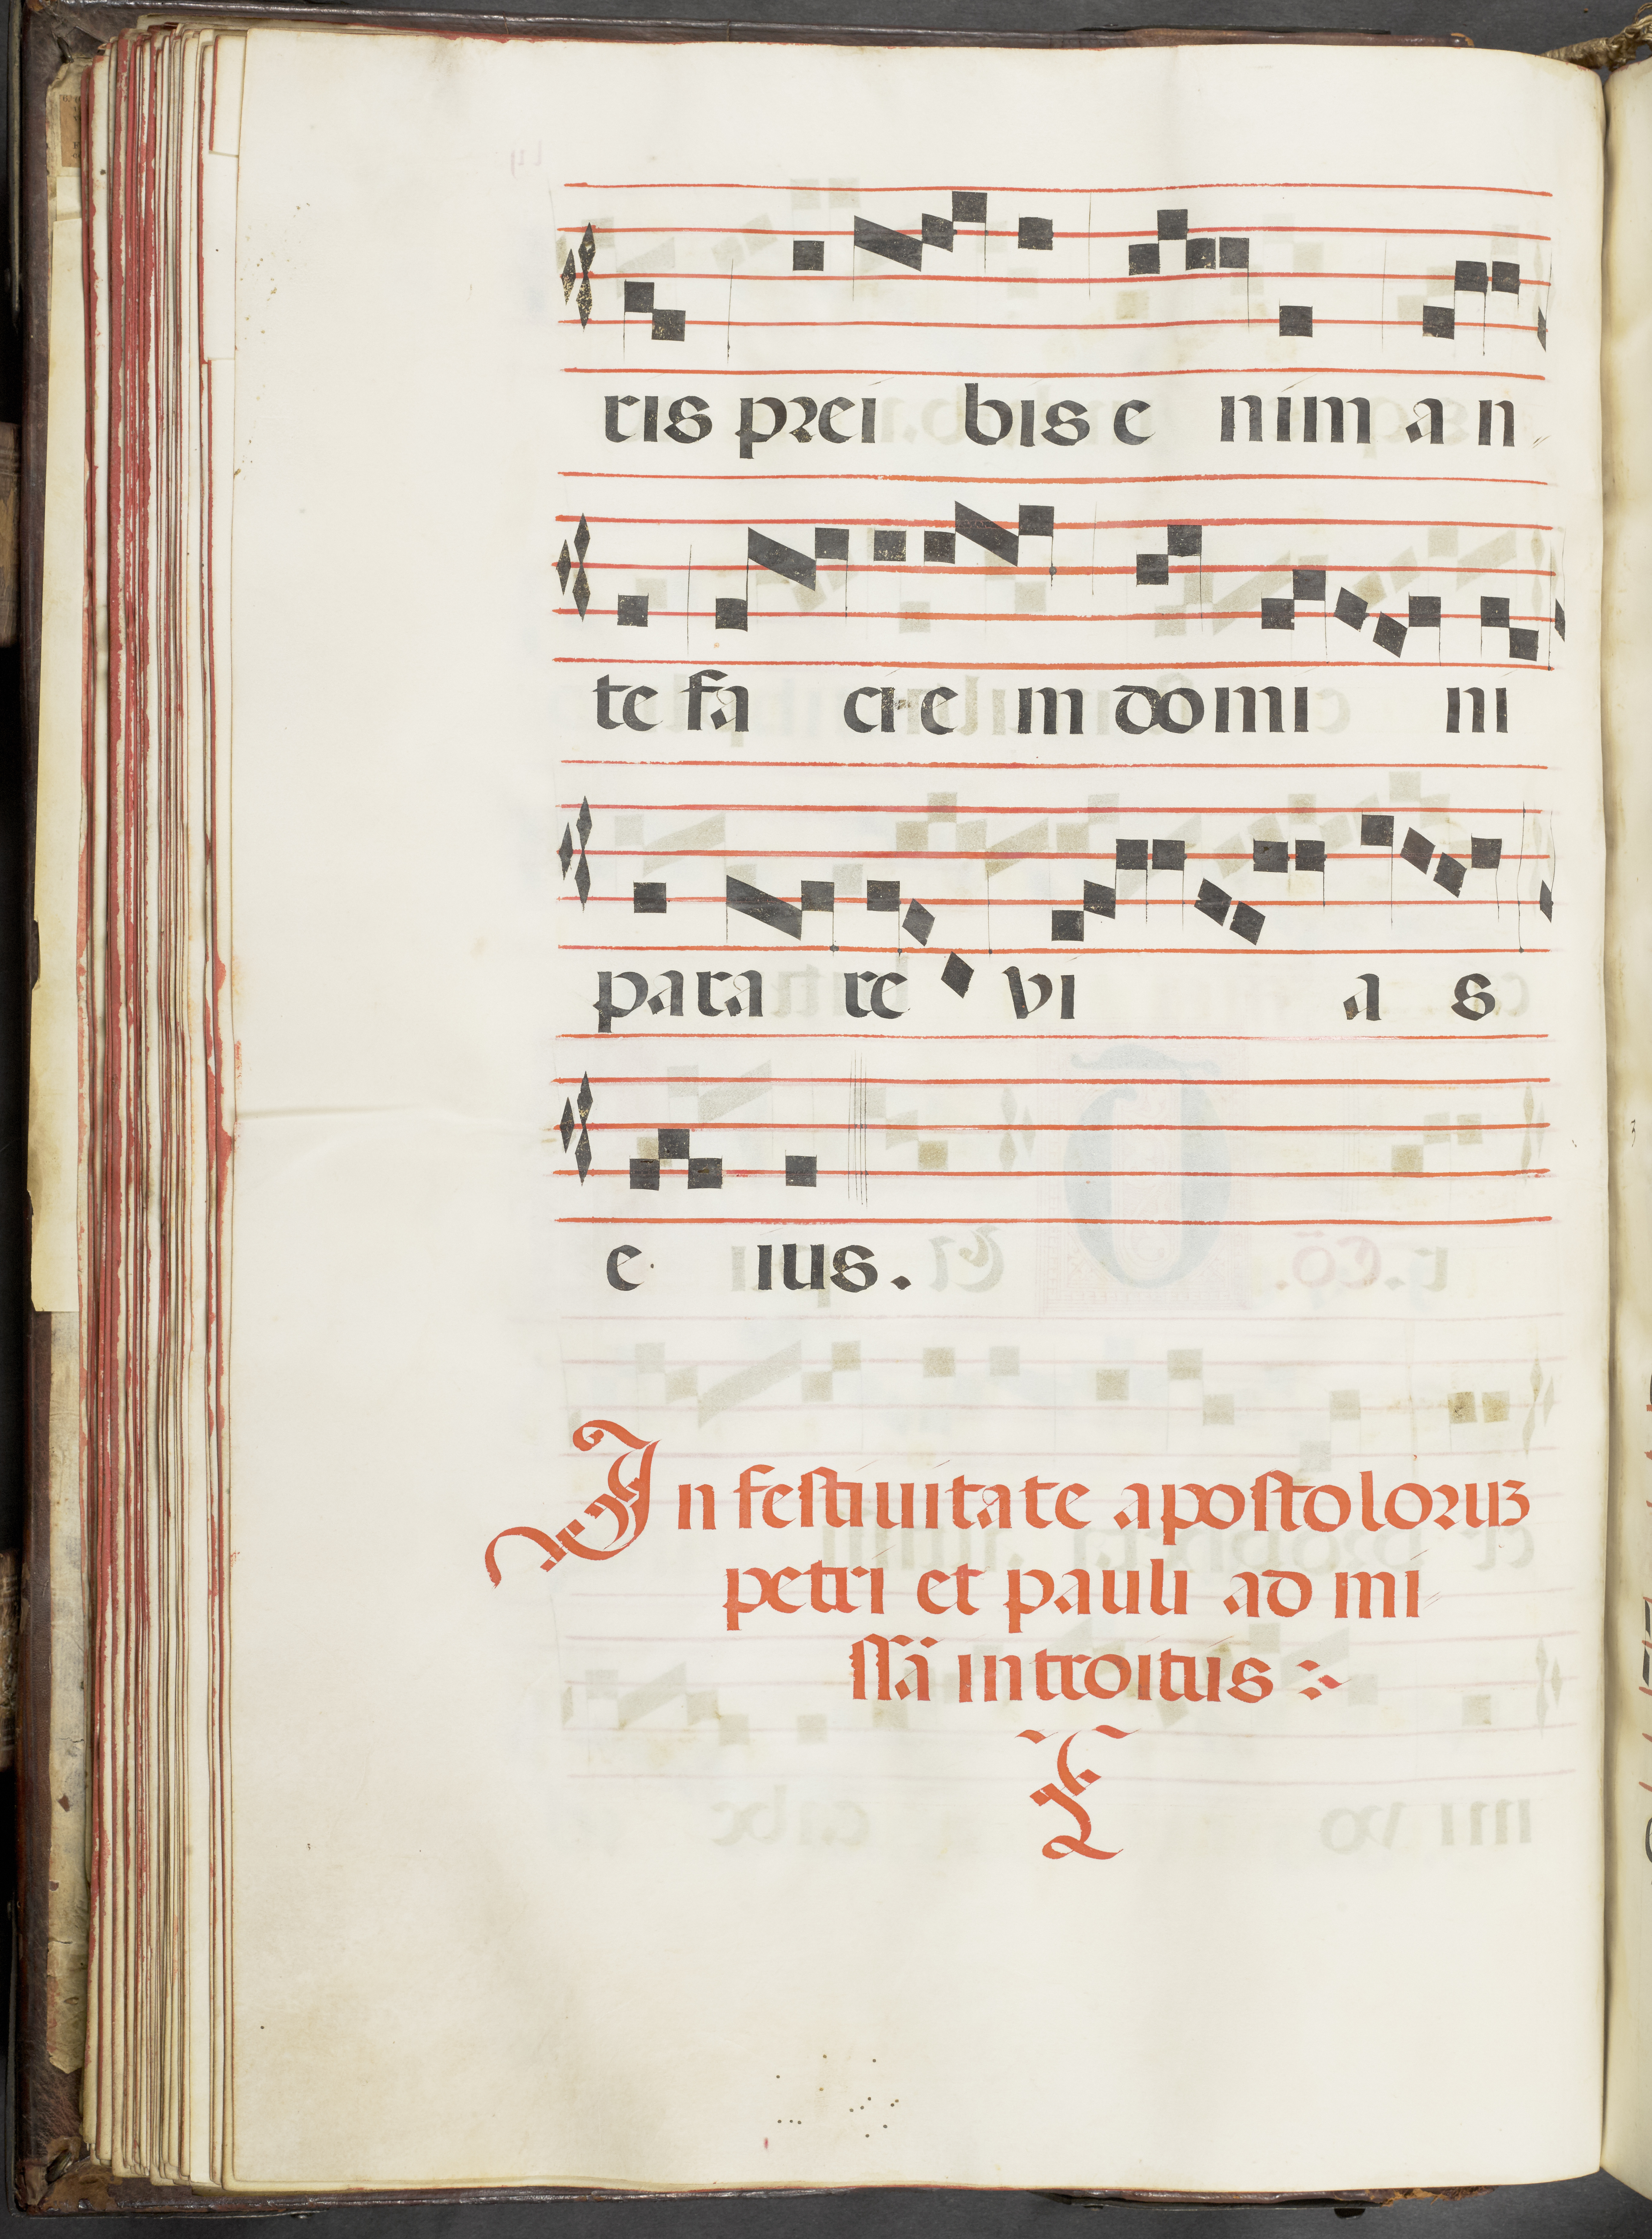 ris prei bis e nim a n
te fa ci e m domi ni
para re vi a s
e ius.
In festiuitate apostoloruʒ
petri et pauli ad mi
ssā introitus